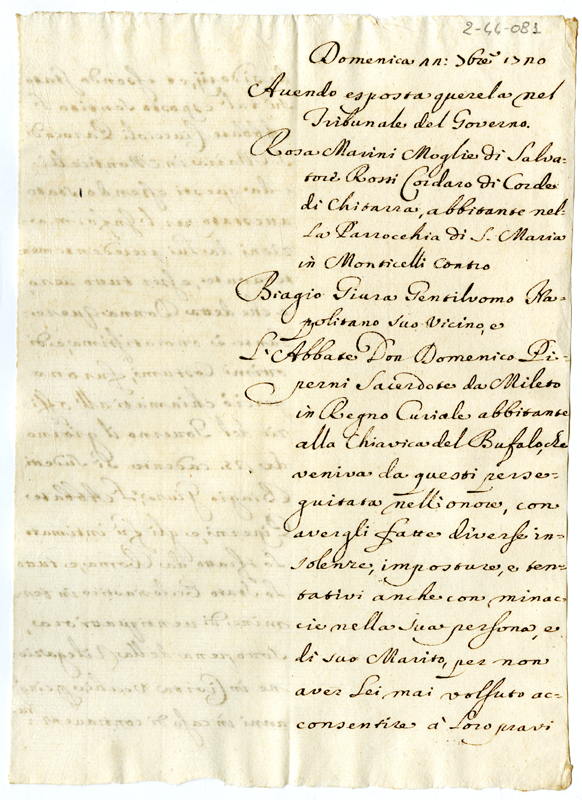 2-44-081
Domenica 11: 7bre 1710
Auendo esposta querela nel
Tribunale del Governo.
Rosa Marini Moglie di Salva-
tore Rossi Cordaro di Corde
di Chitarra, abbitante nel-
la Parrocchia di S. Maria
in Monticelli contro
Biagio Giura Gentilvomo Na-
politano suo Vicino, e
L'Abbate Don Domenico Pi-
perni Sacerdote da Mileto
in Regno Curiale abbitante
alla Chiavica del Bufalo, che
veniva da questi perse-
guitata nell'onore, con
avergli fatte diverse in-
solenze, imposture, e ten-
tativi anche con minac-
cie nella sua persona, e
di suo Marito, per non
aver Lei mai volsuto ac-
consentire à Loro pravi